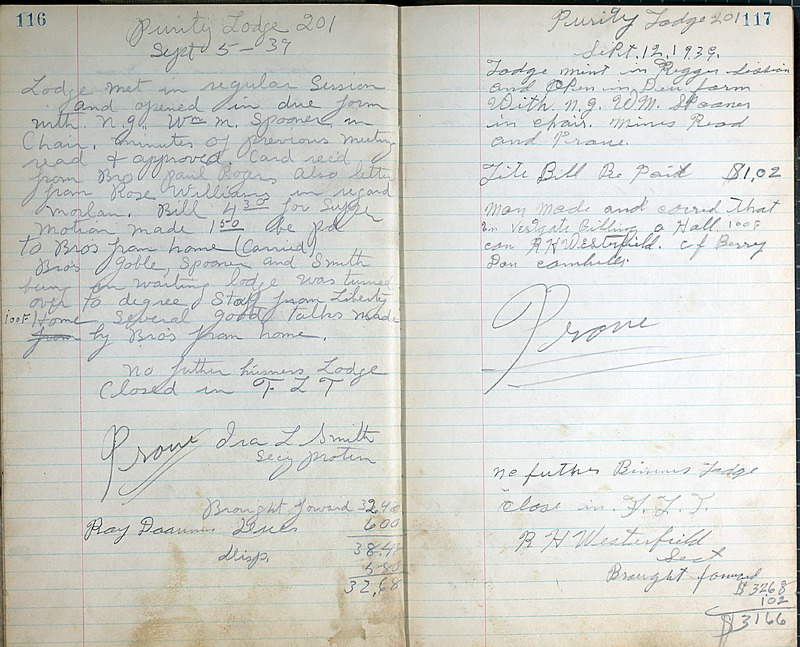 116
Purity Lodge 201
Sept 5-39
Lodge met in regular Session
and opened in due form
with N.g. Wm M. Spooner in
Chair. minutes of previous meeting
read & approved. Card rec'd
from Bro Paul Rogers also letter
from Rose Williams in regard
Morlan. Bill 4 30 for Supper
Motion made 1 50 be pd
to Bro's from home (Carried)
Bro's Goble, Spooner and Smith
being on waiting lodge was turned
over to degree Staff from Liberty
I00F Home Several good talks made
from by Bro's from home.
No futher business Lodge
Closed in F L T
Prove Ira L Smith
Secy protem
Brought Forward 32.48
Ray Dues 600
38.48
disp. 580
32,68
117
Purity Lodge 201
Sept. 12. 1939.
Lodge mint in Regger Session
and Open in Deu form
With. N.g. W.M. Spooner
in chair. mines Read
and Prove.
Lite Bill Be Paid $1,02
mon made and corred That
in Vestgate Billing a Hall. 100F
con R H Westerfield. C F Berry
Don
Prove
no futher Binnus Lodge
close in F. L. T.
R H Westerfield
Sect
Brought forward
$3268
102
$3166